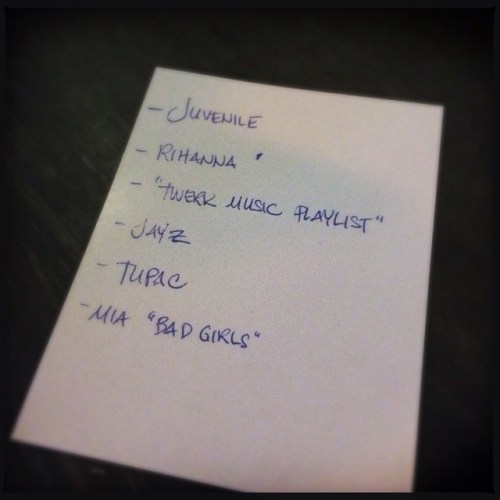 - JUVENILE
- RIHANNA
- "TWERK MUSIC PLAYLIST"
- JAY'Z
- TUPAC
- MIA "BAD GIRLS"